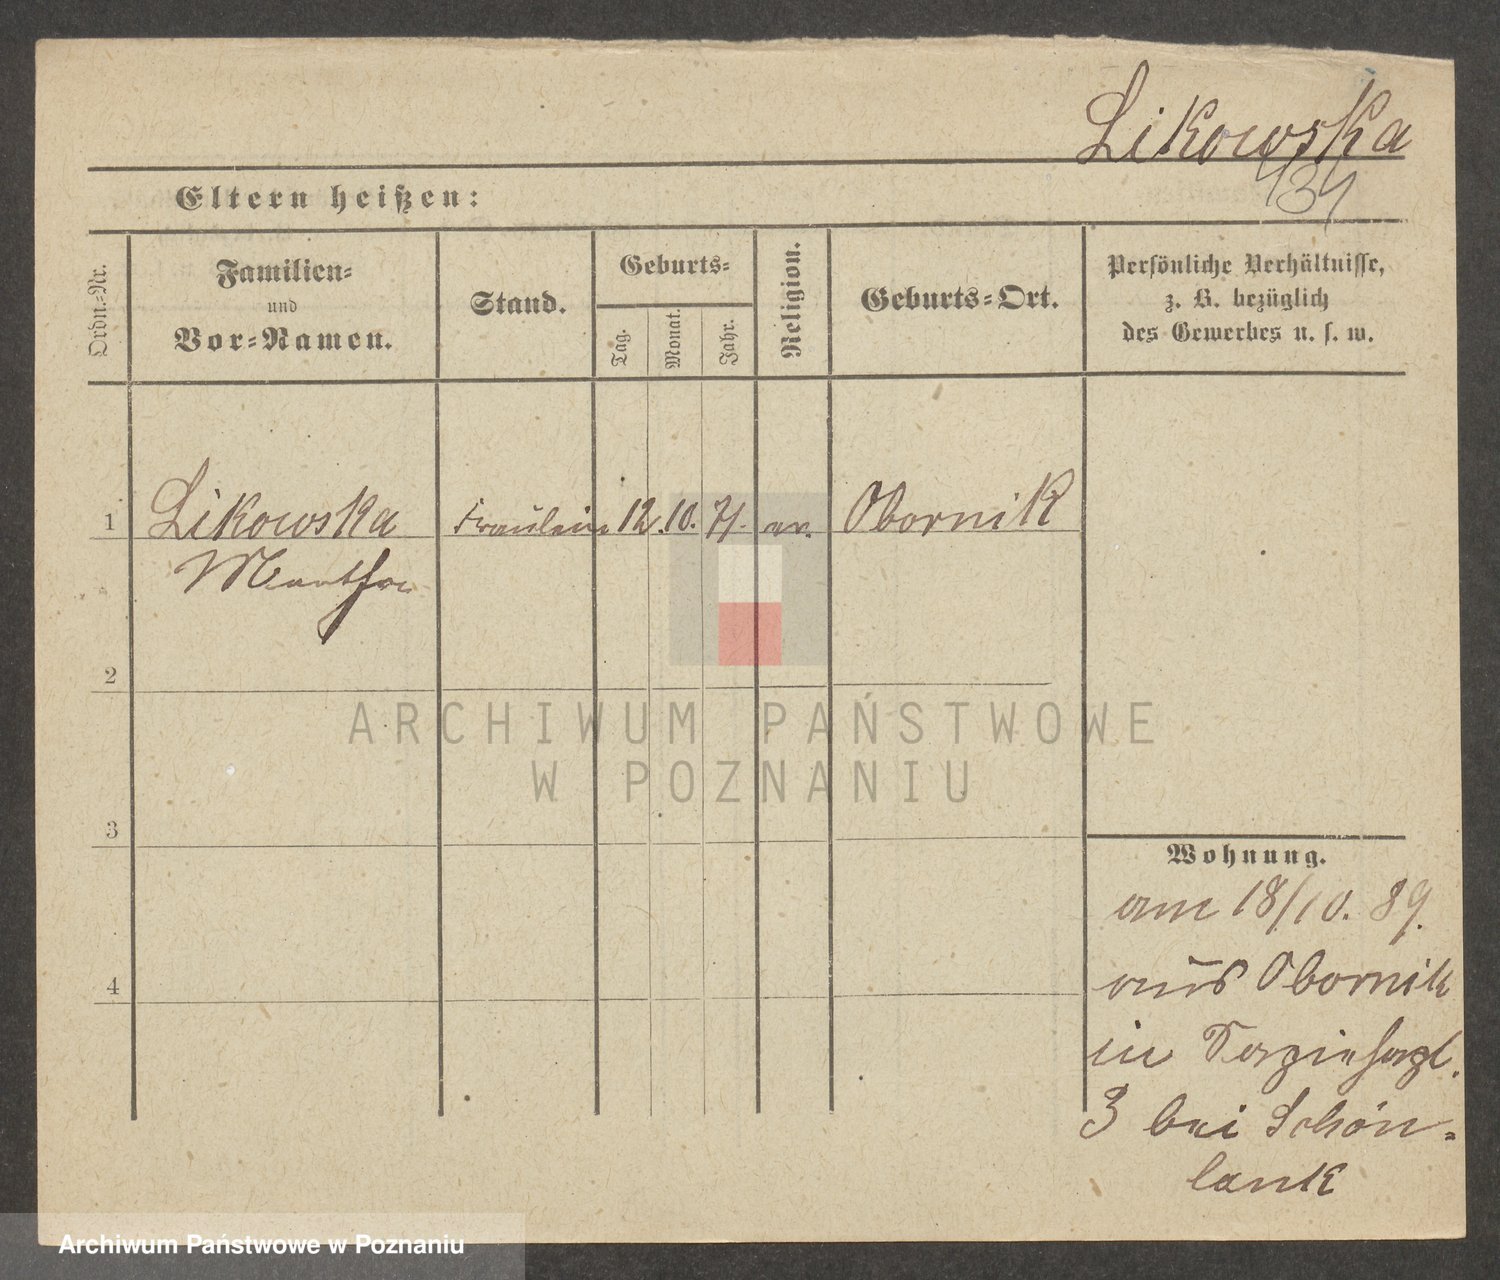 Likowska
434
Eltern heißen:
Ordn=Nr.
Familien=
und
Vor=Namen.
Stand.
Geburts=
Tag.
Monat.
Jahr.
Religion.
Geburts=Ort.
Persönliche Verhältnisse,
z. B. bezüglich
des Gewerbes u. s. w.
1 Likowska Fraulein 12. 10. 71. ev. Obornik
Martha
2
3
4
Wohnung.
am 18/10. 89.
aus Obornik
in
3 bei Schön-
lank
ARCHIWUM PAŃSTWOWE
W POZNANIU
Archiwum Państwowe w Poznaniu